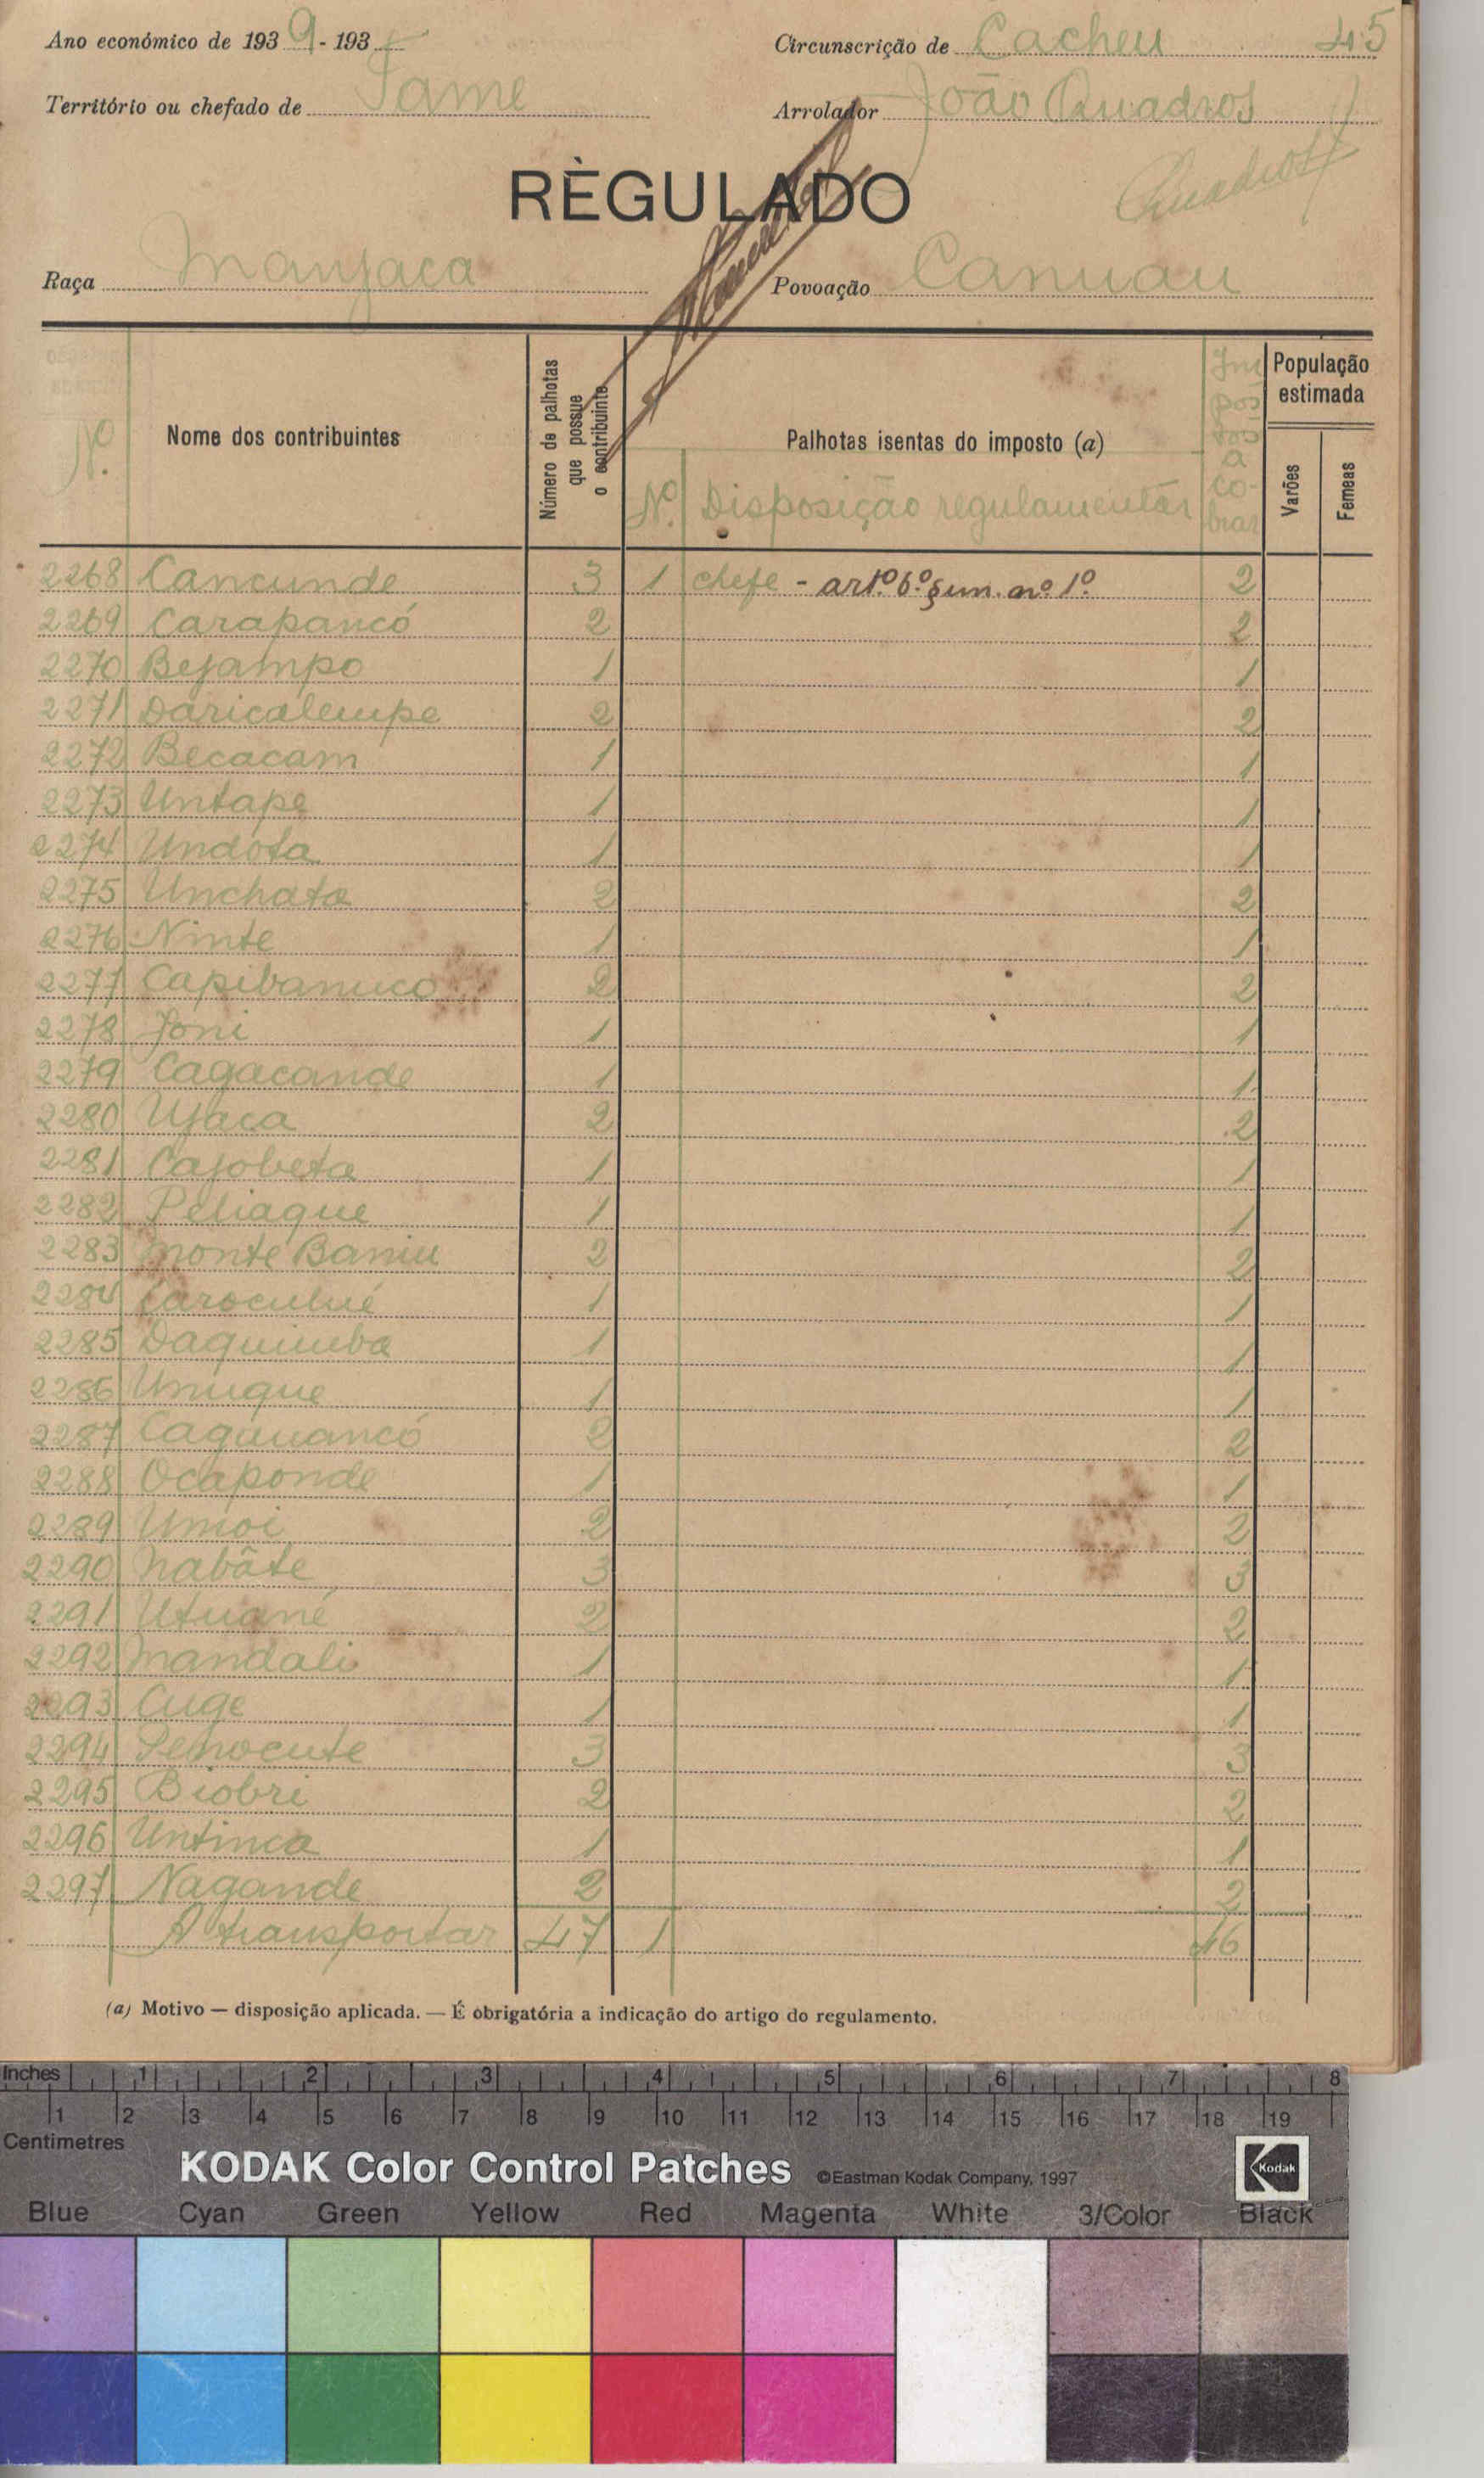 Ano económico de 1939-193
Circunscrição de Cacheu 45
Território ou chefado de Tame
Arrolador João Quadros
RÈGULADO
Quadros
Raça Manjaca
Povoação Canuau
Nº.
Nome dos contribuintes
Número de palhotas que possue o contribuinte
Palhotas isentas do imposto (a)
Nº. Disposição regulamentar
Impostos a cobrar
População estimada
Varões
Femeas
2268 Cancunde 3 1 chefe - artº. 6º. § um. nº 1º 2
2269 Carapancó 2 2
2270 Bejampo 1 1
2271 Daricalempe 2 2
2272 Becacam 1 1
2273 Untape 1 1
2274 Undota 1 1
2275 Unchata 2 2
2276 Ninte 1 1
2277 Capibanuco 2 2
2278 Joni 1 1
2279 Cagacande 1 1
2280 Ujaca 2 2
2281 Cajobeta 1 1
2282 Peliaque 1 1
2283 Monte Baniu 2 2
2284 Carocubué 1 1
2285 Daquimba 1 1
2286 Unuque 1 1
2287 Cagauancó 2 2
2288 Ocaponde 1 1
2289 Umoi 2 2
2290 Nabâte 3 3
2291 Utuané 2 2
2292 Mandali 1 1
2293 Cuge 1 1
2294 Senocute 3 3
2295 Biobri 2 2
2296 Untinca 1 1
2297 Nagande 2 2
A transportar 47 1 46
(a) Motivo — disposição aplicada. — É obrigatória a indicação do artigo do regulamento.
Inches 1 2 3 4 5 6 7 8
1 2 3 4 5 6 7 8 9 10 11 12 13 14 15 16 17 18 19
Centimetres
KODAK Color Control Patches ©Eastman Kodak Company, 1997 Kodak
Blue Cyan Green Yellow Red Magenta White 3/Color Black